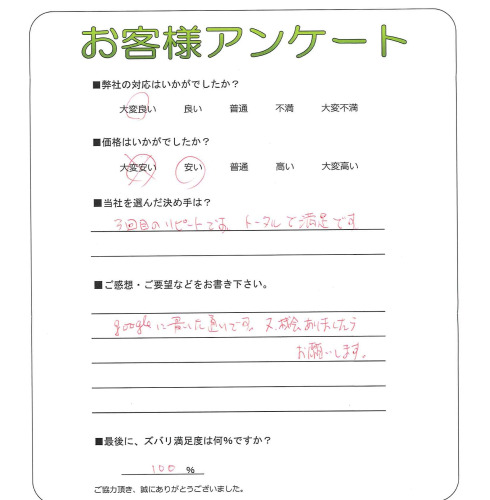 お客様アンケート
■弊社の対応はいかがでしたか？
大変良い 良い 普通 不満 大変不満
■価格はいかがでしたか？
大変安い 安い 普通 高い 大変高い
■当社を選んだ決め手は？
3回目のリピートです。トータルで満足です
■ご感想・ご要望などをお書き下さい。
googleに書いた通りです。又、機会ありましたら
お願いします。
■最後に、ズバリ満足度は何%ですか？
100 %
ご協力頂き、誠にありがとうございました。